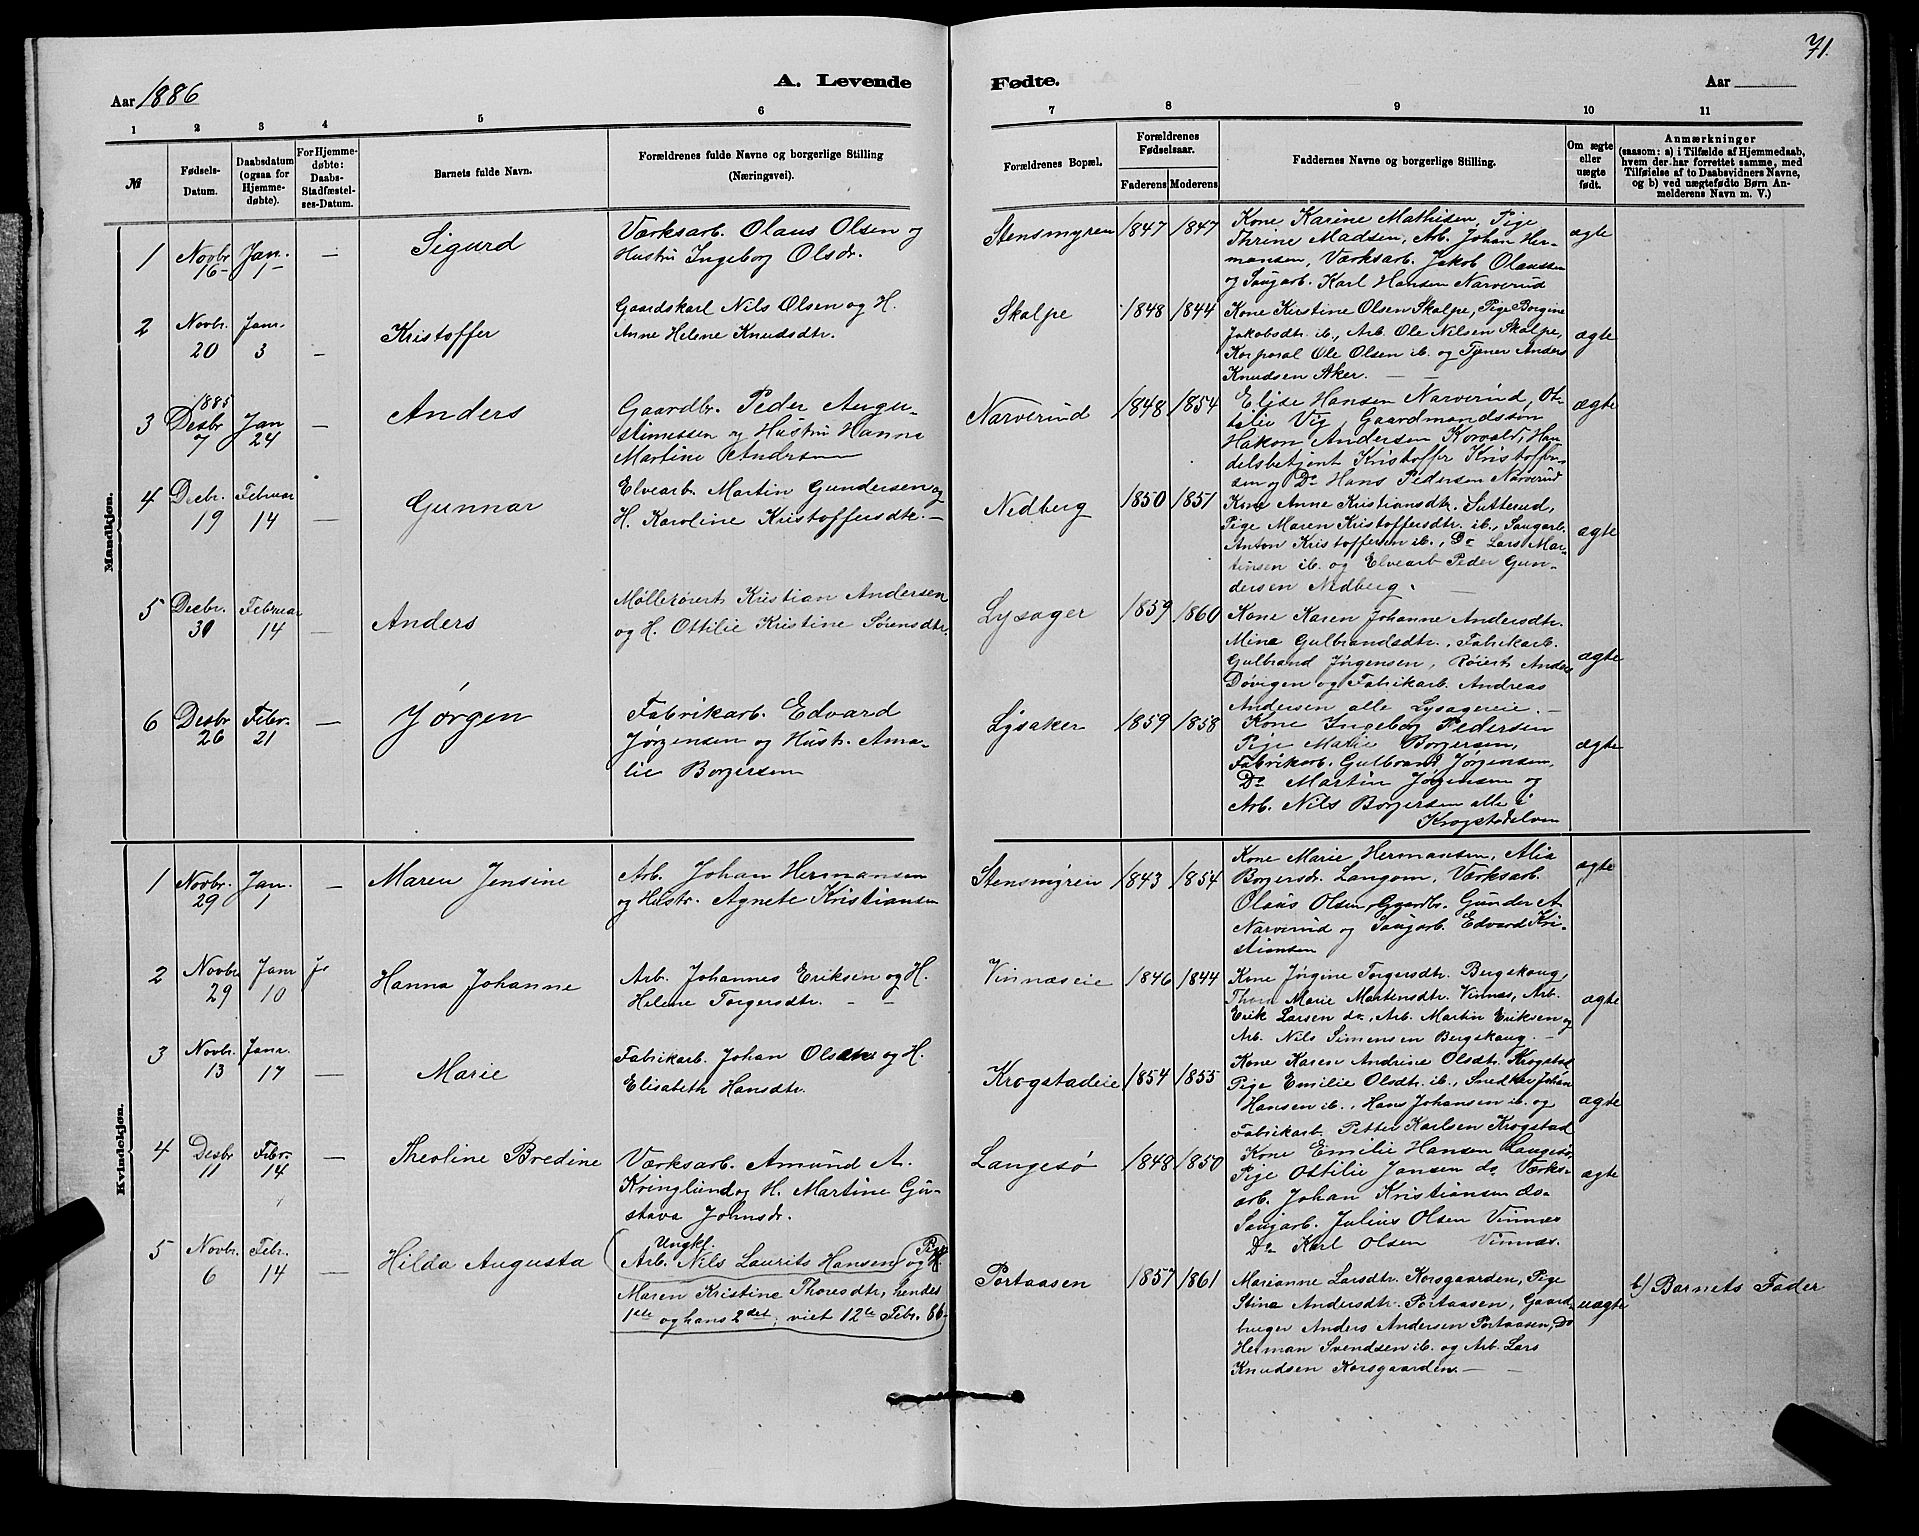 71.
Aar 1886
A. Levende
Fødte.
Aar
1 2 3 4 5 6 7 8 9 10 11
№
Fødsels-
Datum.
Daabsdatum
(ogsaa for
Hjemme-
døbte).
For Hjemme-
døbte:
Daabs-
Stadfæstel-
ses-Datum.
Barnets fulde Navn.
Forældrenes fulde Navne og borgerlige Stilling
(Næringsvei).
Forældrenes Bopæl.
Forældrenes
Fødselsaar.
Faderens Moderens
Faddernes Navne og borgerlige Stilling.
Om ægte
eller
uægte
født.
Anmærkninger
(saasom: a) i Tilfælde af Hjemmedaab,
hvem der har forrettet samme, med
Tilføielse af to Daabsvidners Navne,
og b) ved uægtefødte Børn An-
melderens Navn m. V.)
Mandkjøn.
1 Novbr. 16 Jan. 1 — Sigurd
Værksarb. Olaus Olsen og
Hustru Ingeborg Olsdr.
Stensmyren 1847 1847
Kone Karine Mathisen, Pige
Thrine Madsen, Arb. Johan Her-
mansen, Værksarb. Jakob Olaussen
og Saugarb. Karl Hansen Narverud
ægte
2 Novbr. 20 Janr. 3 — Kristoffer
Gaardskarl Nils Olsen og H.
Anne Helene Knudsdtr.
Skalpe 1848 1844
Kone Kirstine Olsen Skalpe, Pige Borgine
Jakobsdtr. ib., Arb. Ole Nilsen Skalpe,
Korporal Ole Olsen ib. og Tjener Anders
Knudsen Aker. —
ægte
3 1885 Desbr 7 Jan 24 — Anders
Gaardbr. Peder Augu-
stinussen og Hustru Hanna
Martine Andrsen
Narverud 1848 1854
Elise Hansen Narverud, Ot-
tilie Vig Gaardmandssøn
Hakon Andersen Korvald, Han-
delsbetjent Kristoffer Kristoffer-
sen og Do Hans Pedersen Narverud
ægte
4 Decbr. 19 Februar 14 — Gunnar
Elvearb. Martin Gundersen og
H. Karoline Kristoffersdtr. —
Nedberg 1850 1851
Kone Anne Kristiansdtr. Sutterud,
Pige Maren Kristoffersdtr. ib., Saugarb.
Anton Kristoffersen ib., Do Lars Mar-
tinsen ib. og Elvearb Peder Gun-
dersen Nedberg. —
ægte
5 Decbr. 30 Februar 14 — Anders
Møllerøiert Kristian Andersen
og H. Ottilie Kristine Sørensdtr.
Lysager 1859 1860
Kone Karen Johanne Andersdtr.
Mina Gulbrandsdtr., Fabrikarb.
Gulbrand Jørgensen, Røiert Anders
Døvigen og Fabrikarb. Andreas
Andersen alle Lysagereie. —
ægte
6 Desbr 26 Febr. 21 — Jørgen
Fabrikarb. Edvard
Jørgensen og Hustr. Ama-
lie Borgersen
Lysaker 1859 1858
Kone Ingeborg Pedersen
Pige Marie Borgersen,
Fabrikarb. Gulbrand Jørgensen,
Do Martin Jørgensen og
Arb. Nils Borgersen alle i
Krogstadelven
ægte
Kvindekjøn.
1 Novbr. 29 Jan. 1 — Maren Jensine
Arb. Johan Hermansen
og Hustr. Agnete Kristiansen
Stensmyren 1843 1854
Kone Marie Hermansen, Alia
Borgersdr. Langom, Værksarb.
Olaus Olsen, Gaardbr. Gunder A
Narverud og Saugarb. Edvard Kri-
stiansen
ægte
2 Novbr 29 Janr 10 Jo Hanna Johanne
Arb. Johannes Eriksen og H.
Helene Torgersdtr. — —
Vinnæseie 1846 1844
Kone Jørgine Torgersdtr. Bergskaug,
Marie Martensdtr. Vinnæs, Arb.
Erik Larsen do., Arb. Martin Eriksen og
Arb. Nils Simensen Bergskaug. —
ægte
3 Novbr. 13 Janr. 17 — Marie
Fabrikarb. Johan Olsen og H.
Elisabeth Hansdtr.
Krogstadeie 1854 1855
Kone Karen Andrine Olsdtr. Krogstad
Pige Emilie Olsdtr. ib., Snedker Johan
Hansen ib., Hans Johansen ib. og
Fabrikarb. Petter Karlsen Krogstad
ægte
4 Desbr 11 Febr. 14 — Theoline Bredine
Værksarb. Amund A.
Kringlund og H. Martine Gu-
stava Johnsdr.
Langesø 1848 1850
Kone Emilie Hansen Langesø,
Pige Ottilie Jansen do Værks-
arb. Johan Kristiansen do.
Saugarb. Julius Olsen Vinnæs
Do Karl Olsen Vinnæs.
ægte
5 Novbr. 6 Febr. 14 — Hilda Augusta
Ungkl. Pig
Arb. Nils Laurits Hansen og H.
Maren Kristine Thoresdtr., hendes
1ste og hans 2det, viet 12te Febr. 86.
Portaasen 1857 1861
Marianne Larsdtr. Korsgaarden, Pige
Stina Andersdtr. Portaasen, Gaard-
bruger Anders Andersen Portaasen, Do
Herman Svendsen ib. og Arb. Lars
Knudsen Korsgaarden. —
uægte
b) Barnets Fader